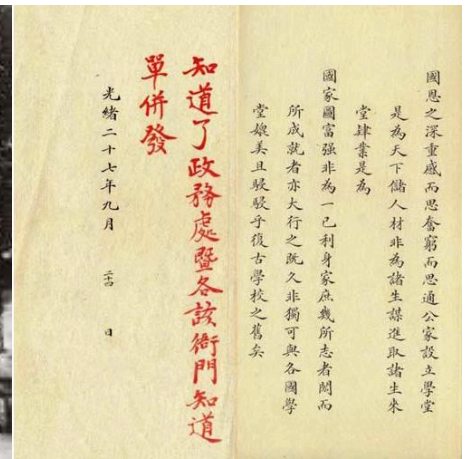 國恩之深重感而思奮窮而思通公家設立學堂
是為天下儲人材非為諸生謀進取諸生來
堂肄業是為
國家圖富强非為一己利身家庶幾所志者闊而
所成就者亦大行之既久非獨可與各國學
堂媲美且駸駸乎復古學校之舊矣
知道了政務處暨各該衙門知道
單併發
光緒二十七年九月 二十四 日